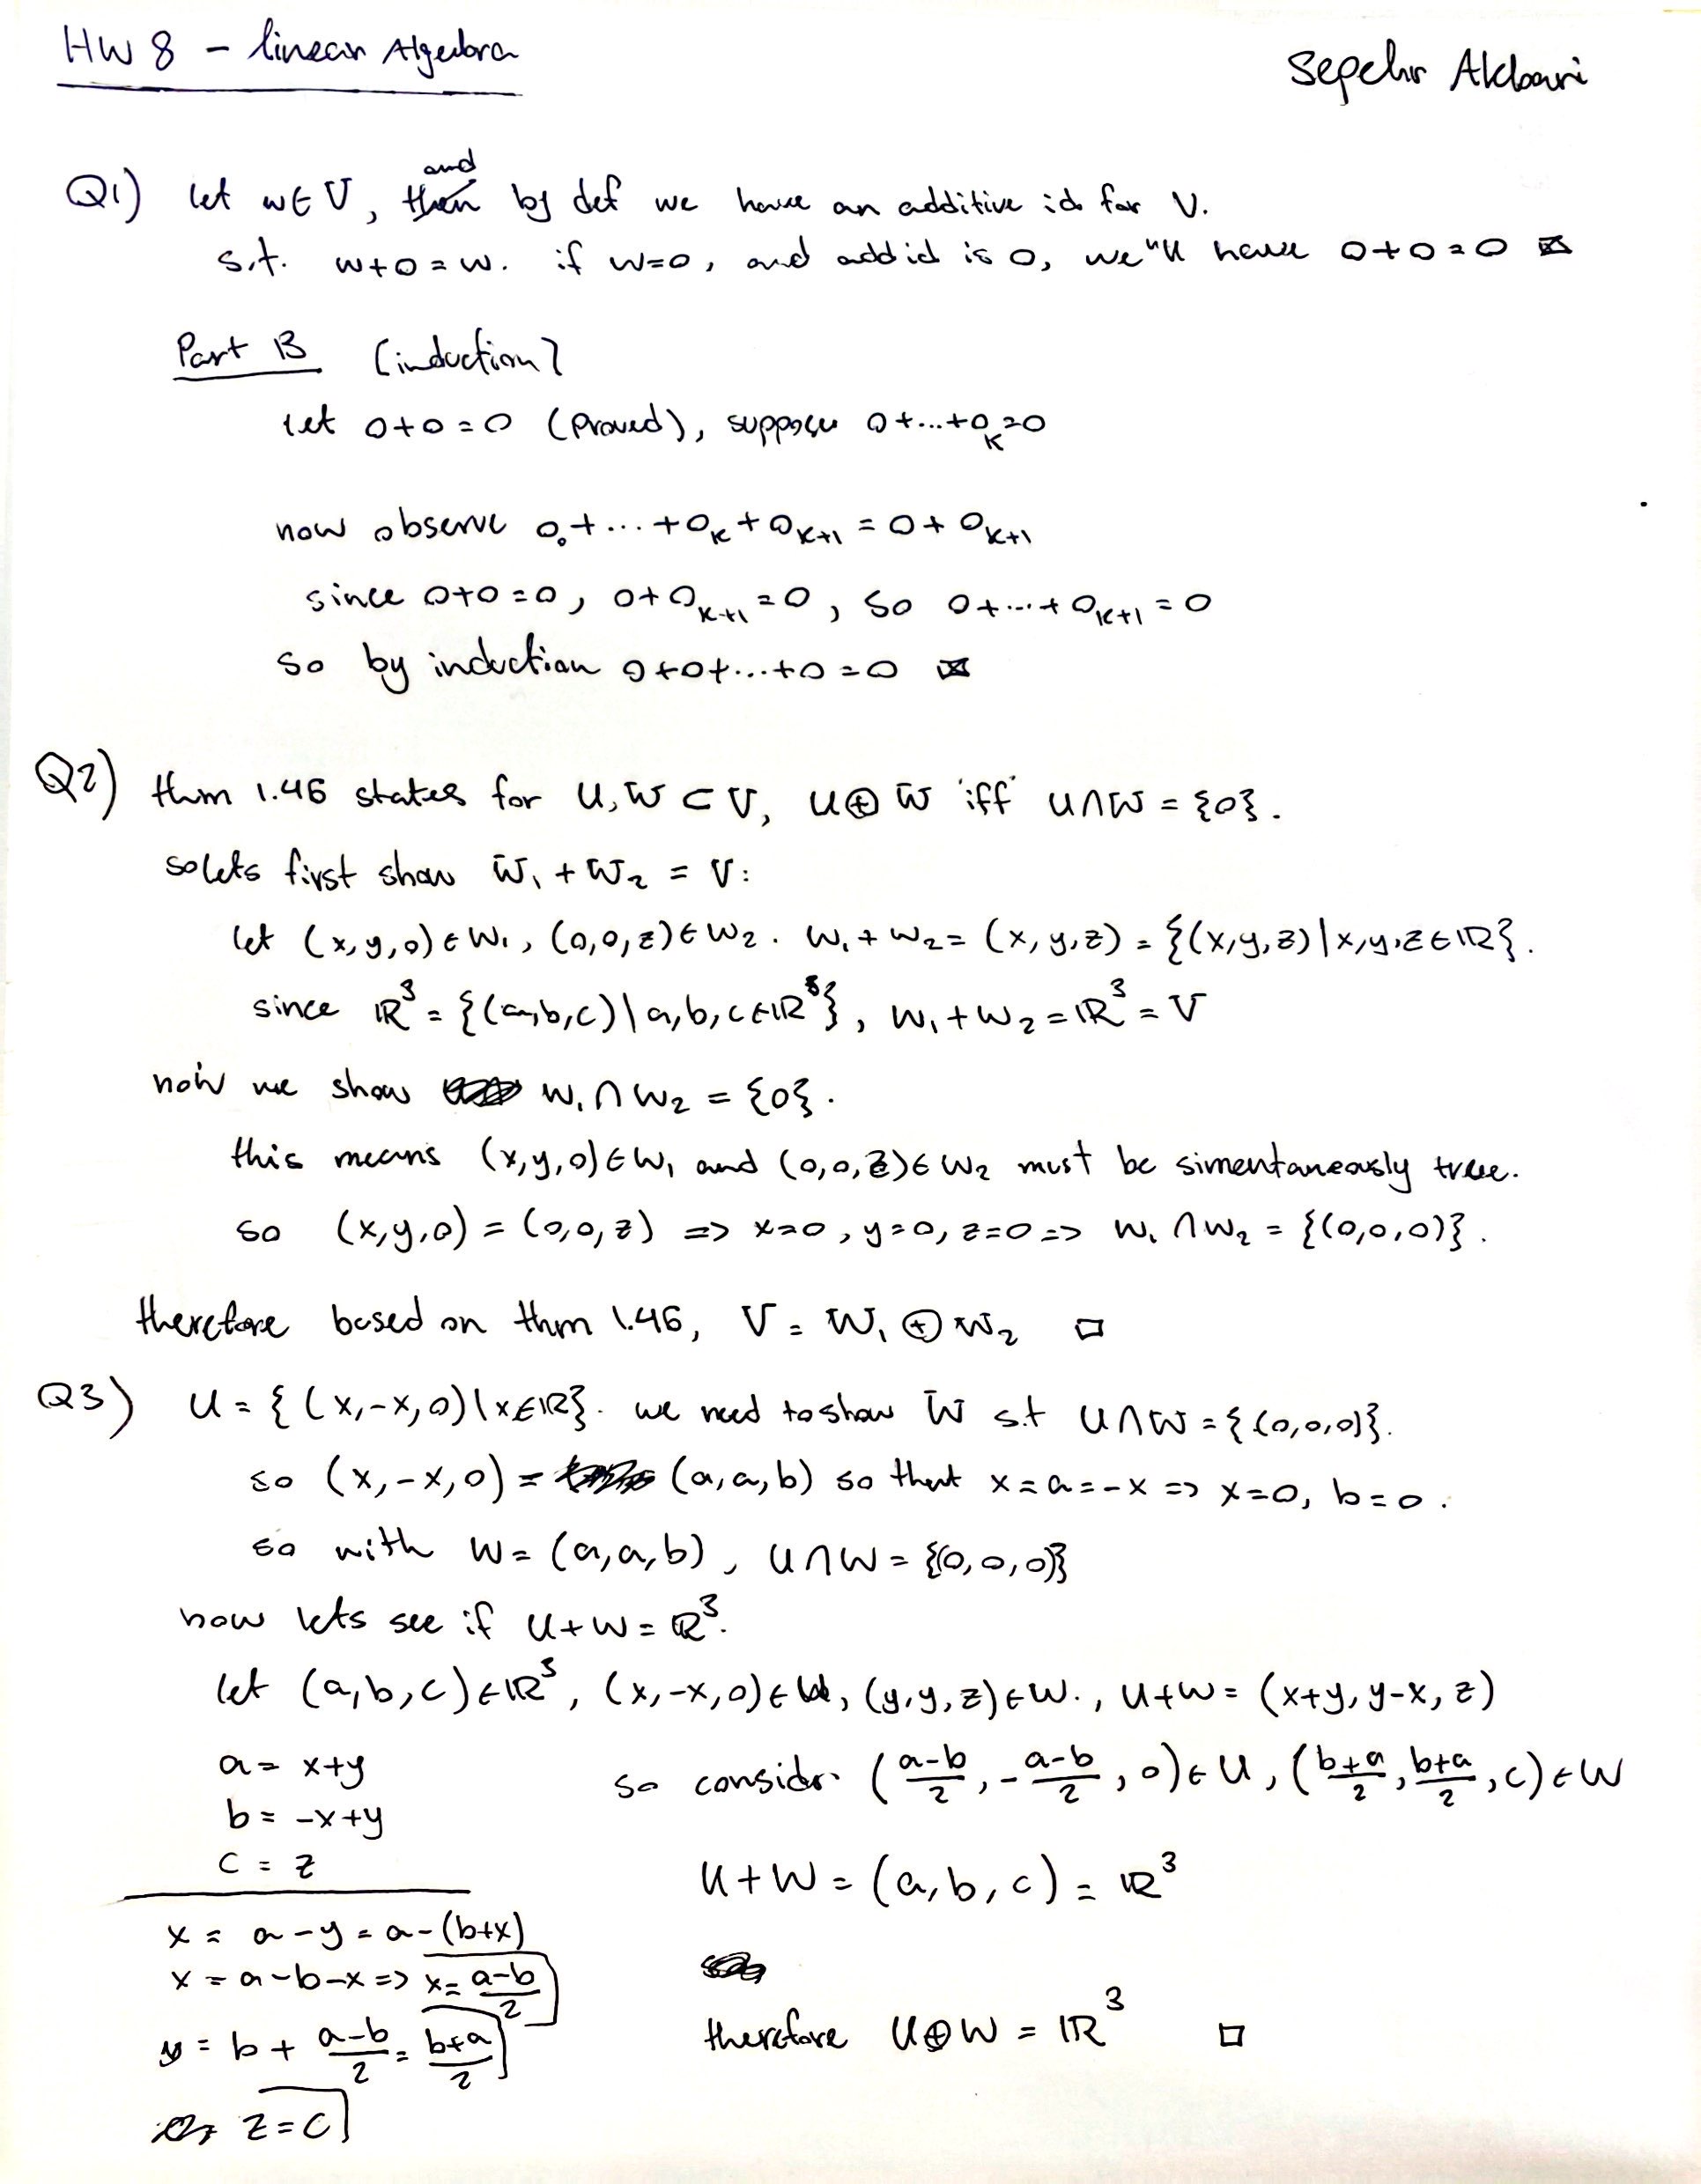 HW 8 - linear Algebra
Sepehr Akbari
Q1) let w∈V, then and by def we have an additive id for V.
s.t. w+0=w. if w=0, and add id is 0, we'll have 0+0=0 ⊠
Part B (induction)
let 0+0=0 (proved), suppose 0+...+0_k=0
now observe 0_0+...+0_k+0_{k+1} = 0+0_{k+1}
since 0+0=0, 0+0_{k+1}=0, so 0+...+0_{k+1}=0
so by induction 0+0+...+0=0 ⊠
Q2) thm 1.46 states for U,W⊂V, U⊕W iff U∩W={0}.
so lets first show W₁+W₂ = V:
let (x,y,0)∈W₁, (0,0,z)∈W₂. W₁+W₂=(x,y,z)={(x,y,z)|x,y,z∈ℝ}.
since ℝ³={(a,b,c)|a,b,c∈ℝ³}, W₁+W₂=ℝ³=V
now we show W₁∩W₂={0}.
this means (x,y,0)∈W₁ and (0,0,z)∈W₂ must be simentaneously true.
so (x,y,0)=(0,0,z) => x=0, y=0, z=0 => W₁∩W₂={(0,0,0)}.
therefore based on thm 1.46, V=W₁⊕W₂ □
Q3) U={(x,-x,0)|x∈ℝ}. we need to show W s.t U∩W={(0,0,0)}.
so (x,-x,0)=(a,a,b) so that x=a=-x => x=0, b=0.
so with W=(a,a,b), U∩W={(0,0,0)}
now lets see if U+W=ℝ³.
let (a,b,c)∈ℝ³, (x,-x,0)∈U, (y,y,z)∈W., U+W=(x+y, y-x, z)
a= x+y
b= -x+y
c = z
x = a-y = a-(b+x)
x = a-b-x => x= (a-b)/2
y = b + (a-b)/2 = (b+a)/2
z=c
so consider (a-b/2, -a-b/2, 0)∈U, (b+a/2, b+a/2, c)∈W
U+W=(a,b,c)=ℝ³
therefore U⊕W=ℝ³ □